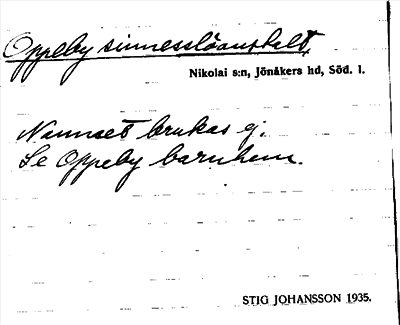 Oppeby sinnesslöanstalt,
Nikolai s:n, Jönåkers hd, Söd. l.
Namnet brukas ej.
Se Oppeby barnhem.
STIG JOHANSSON 1935.